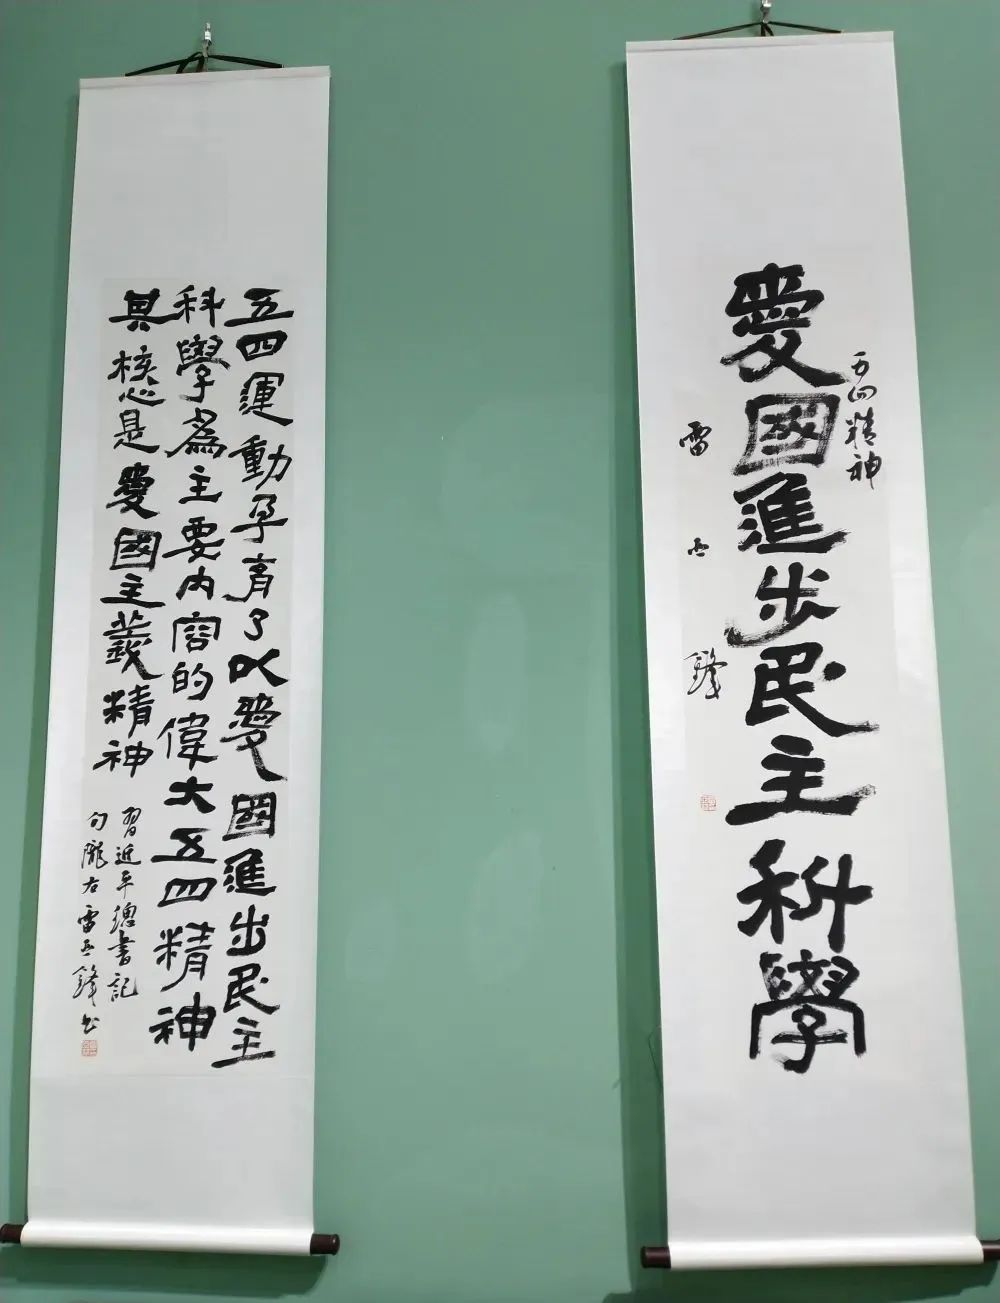 五四精神
愛國進步民主科學
雷五鋒
五四運動孕育了以愛國進步民主
科學為主要内容的偉大五四精神
其核心是愛國主義精神
習近平總書記
句隴右雷五鋒書